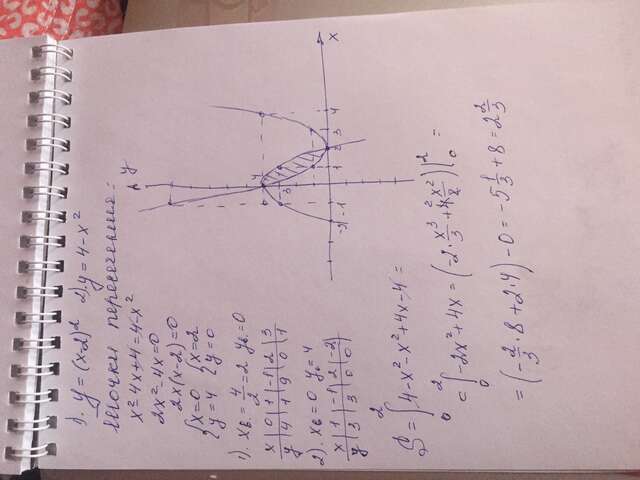 1). y = (x-2)² 2). y = 4 - x²
Точки пересечения:
x² - 4x + 4 = 4 - x²
2x² - 4x = 0
2x(x-2) = 0
{x = 0 {x = 2
{y = 4 {y = 0
1). xв. = 4/2 = 2 yв. = 0
x | 0 | 1 | -1 | 2 | 3
y | 4 | 1 | 9 | 0 | 1
2). xв = 0 yв = 4
x | 1 | -1 | 2 | -2
y | 3 | 3 | 0 | 0
y
4
3
1
-2 -1 1 2 3 4 x
S = ∫₀² 4 - x² - x² + 4x - 4 =
= ∫₀² -2x² + 4x = (-2 · x³/3 + 4 x²/2)|₀² =
= (-2/3 · 8 + 2 · 4) - 0 = -5 1/3 + 8 = 2 2/3